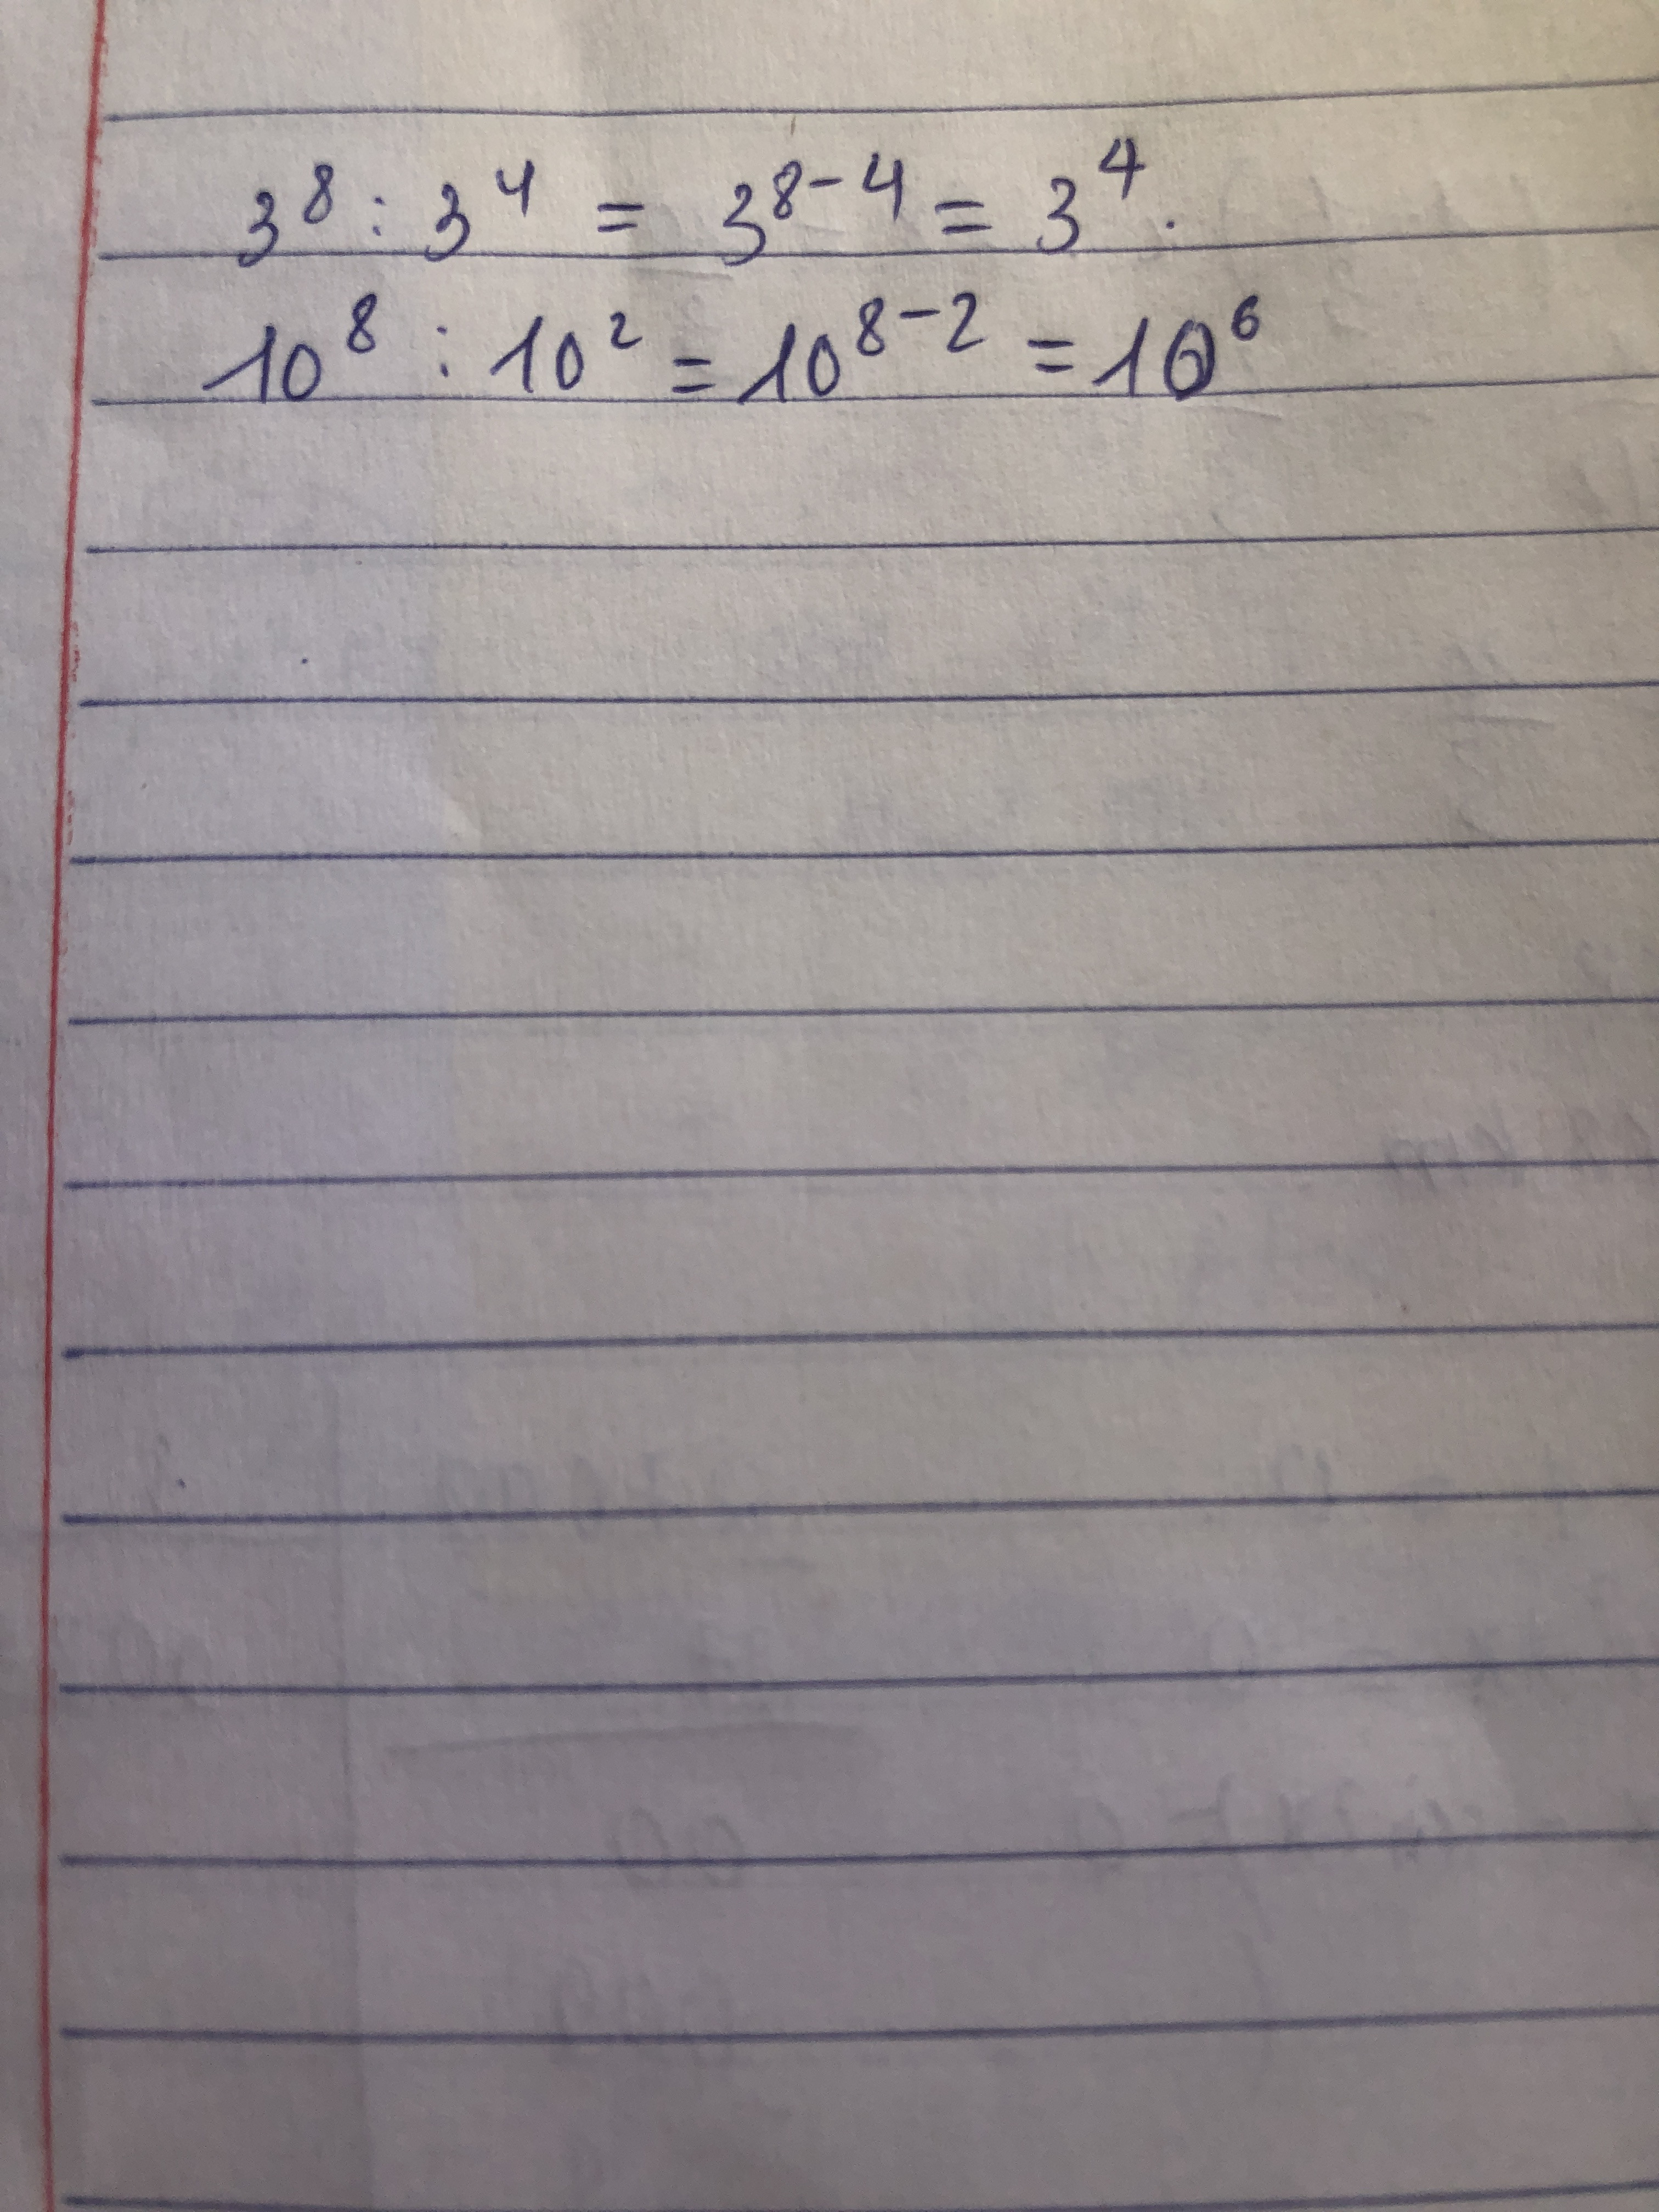 3⁸ : 3⁴ = 3⁸⁻⁴ = 3⁴.
10⁸ : 10² = 10⁸⁻² = 10⁶